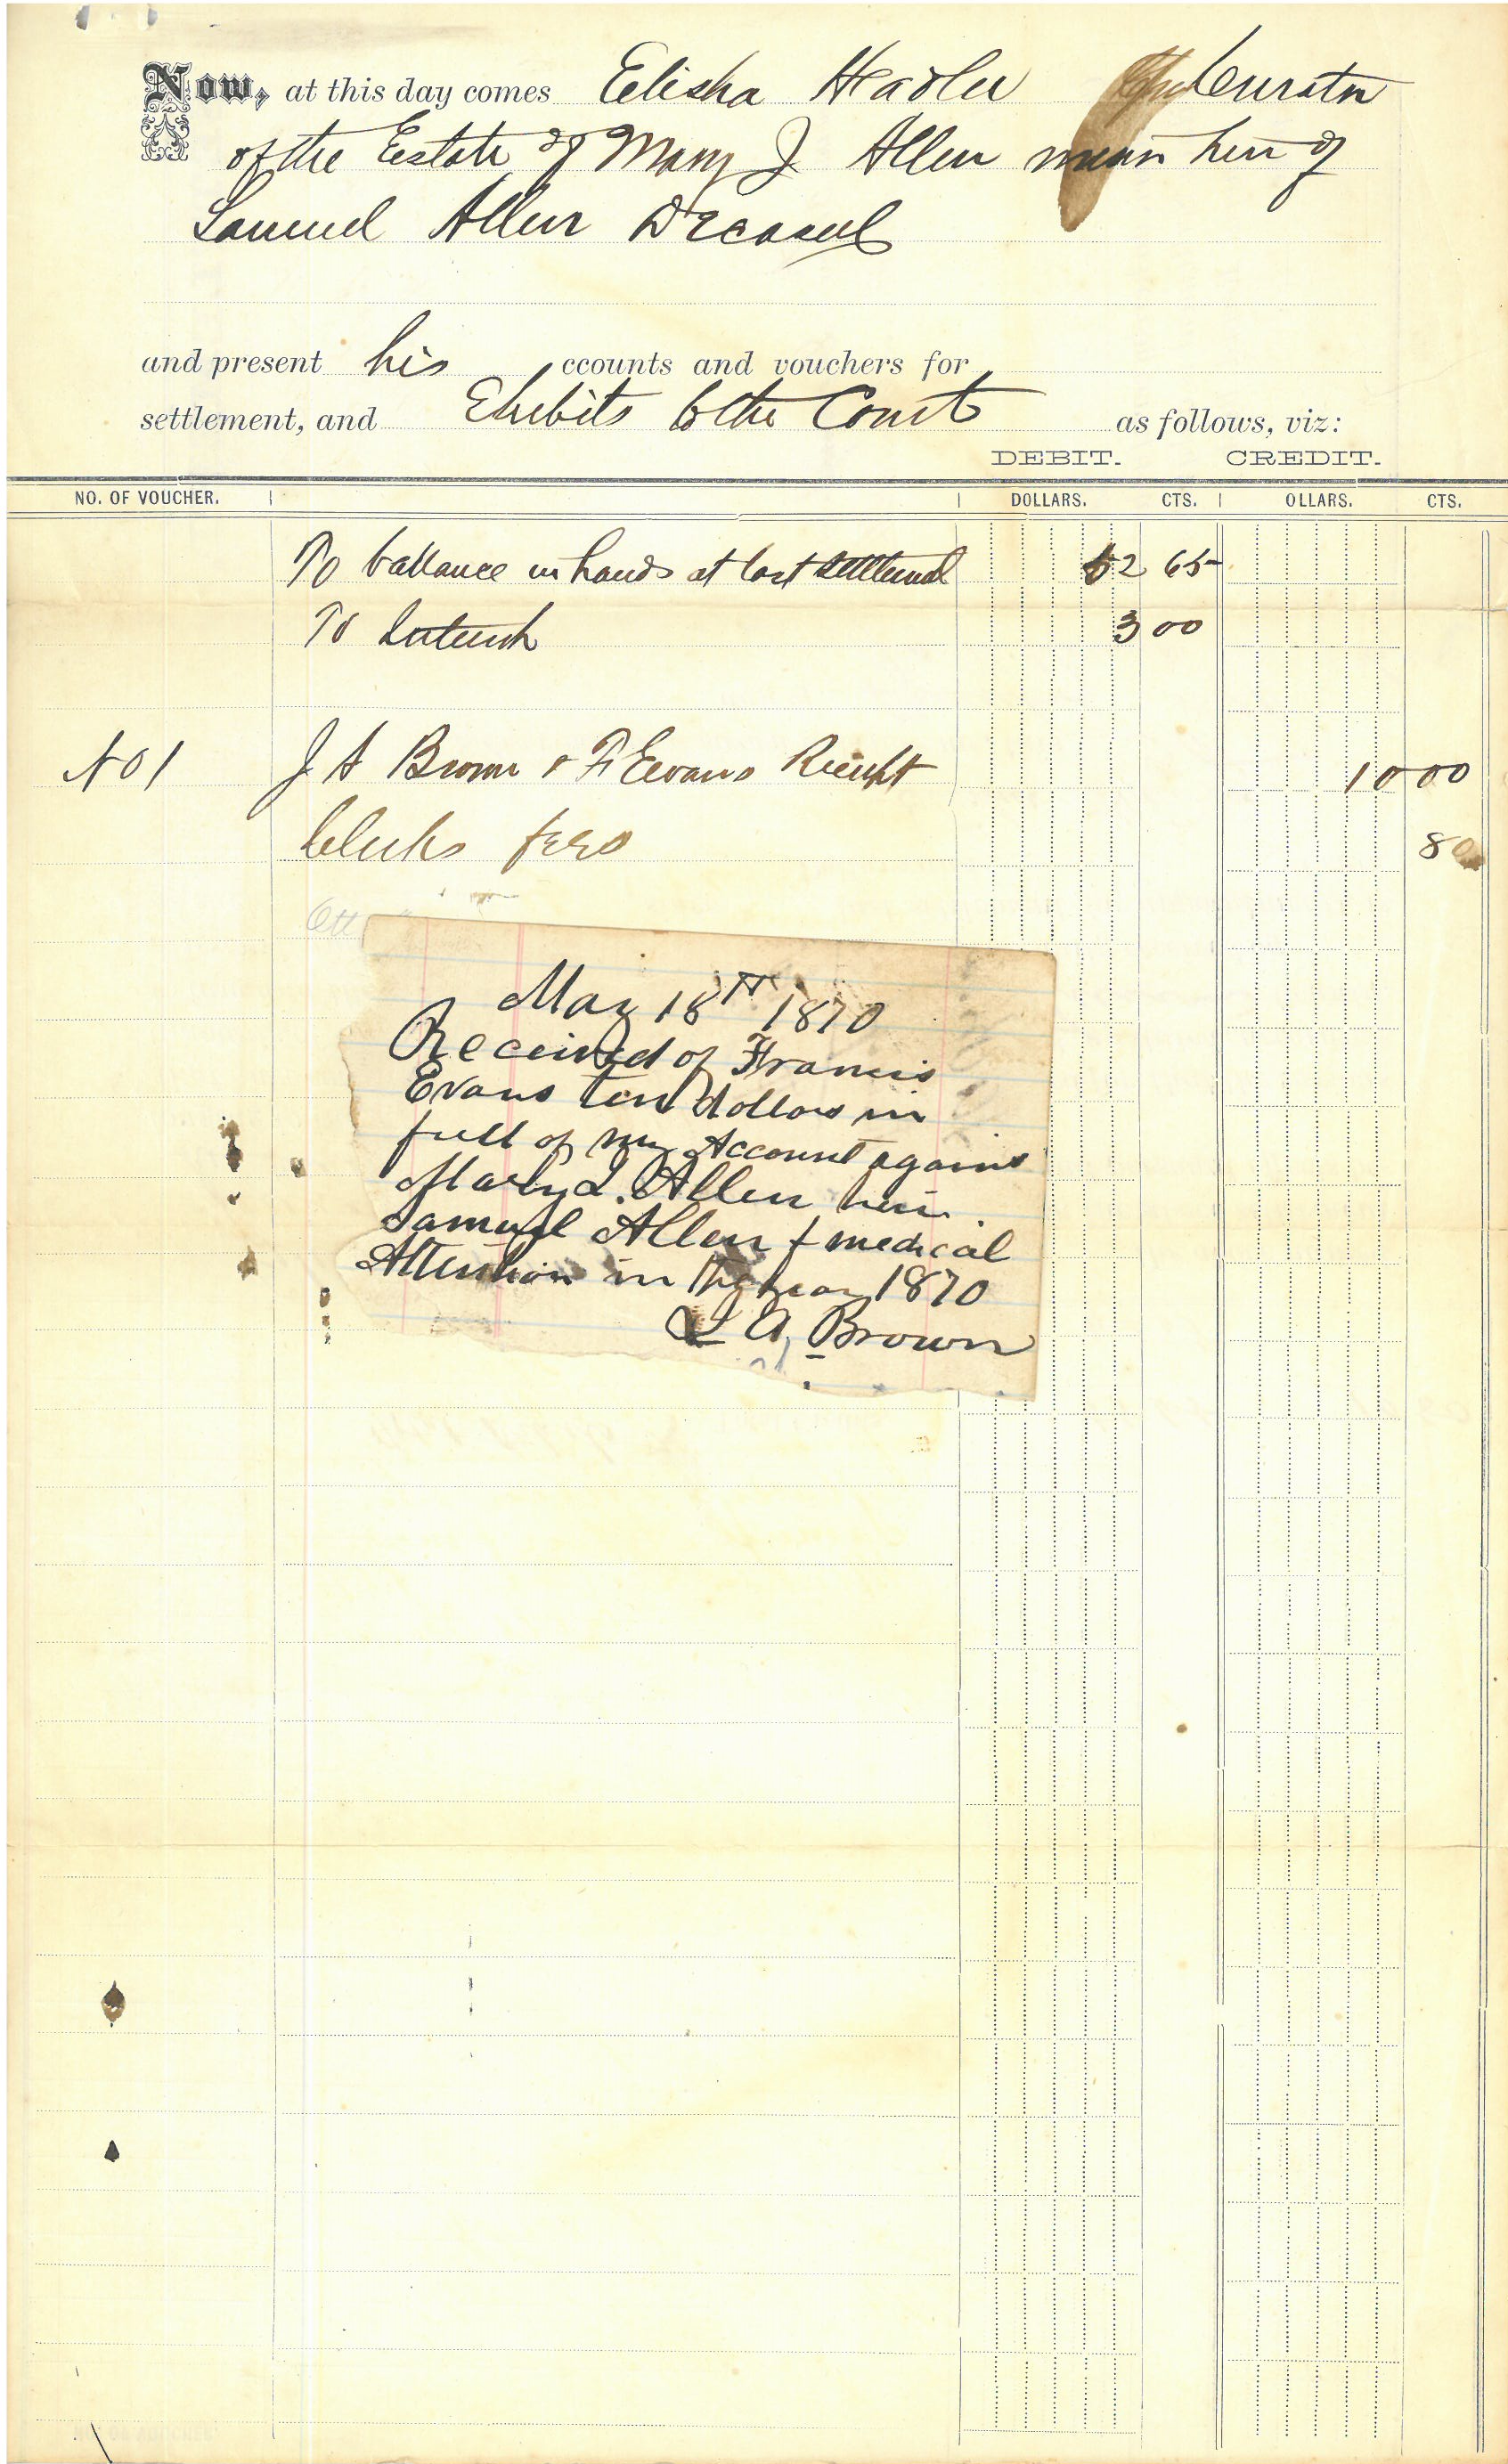 Now, at this day comes Elisha Hadley Curator
of the Estate of Mary J Allen minor heir of
Samuel Allen Deceased
and present his ccounts and vouchers for
settlement, and Exhibits to the Court as follows, viz:
DEBIT. CREDIT.
NO. OF VOUCHER. DOLLARS. CTS. OLLARS. CTS.
To ballance in hands at last settlement 52 65
To Interest 3 00
No 1 J A Brown & F Evans Receipt 10 00
Clerks fees 80
May 18th 1870
Received of Francis
Evans ten dollars in
full of my Account agains
Mary J. Allen heir
Samuel Allen f medical
Attention in the year 1870
J A, Brown